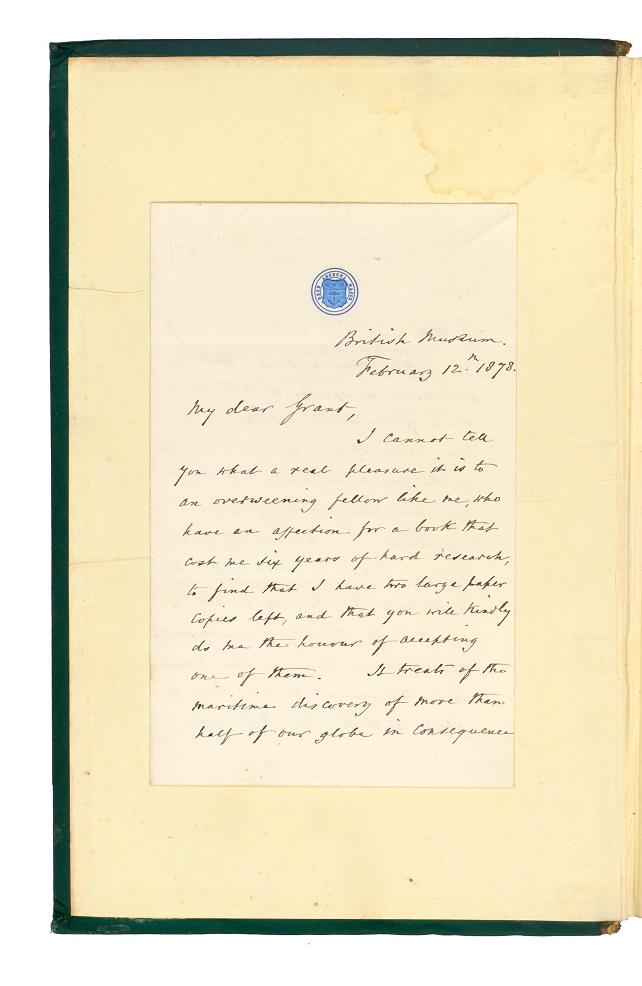 British Museum.
February 12th 1878.
My dear Grant,
I cannot tell
you what a real pleasure it is to
an overweening fellow like me, who
have an affection for a book that
cost me six years of hard research,
to find that I have two large paper
copies left, and that you will kindly
do me the honour of accepting
one of them. It treats of the
maritime discovery of more than
half of our globe in consequence